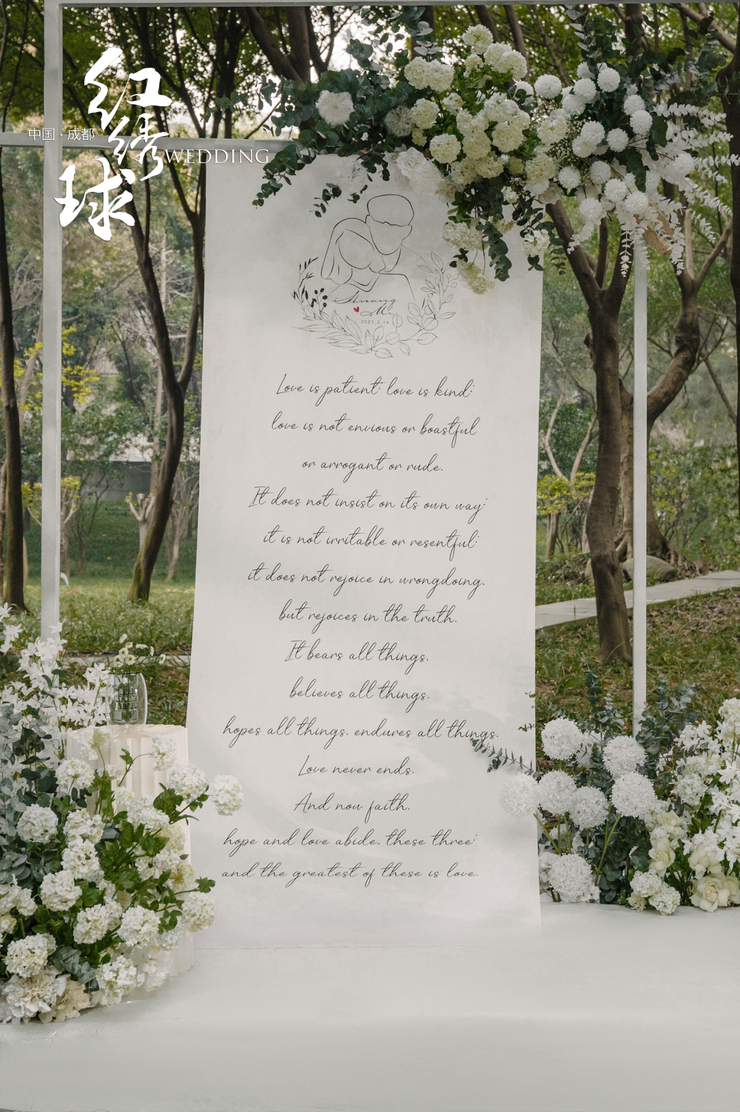 红绣球
中国·成都
WEDDING
Love is patient; love is kind;
love is not envious or boastful
or arrogant or rude.
It does not insist on its own way;
it is not irritable or resentful;
it does not rejoice in wrongdoing,
but rejoices in the truth.
It bears all things,
believes all things,
hopes all things, endures all things.
Love never ends.
And now faith,
hope and love abide, these three;
and the greatest of these is love.